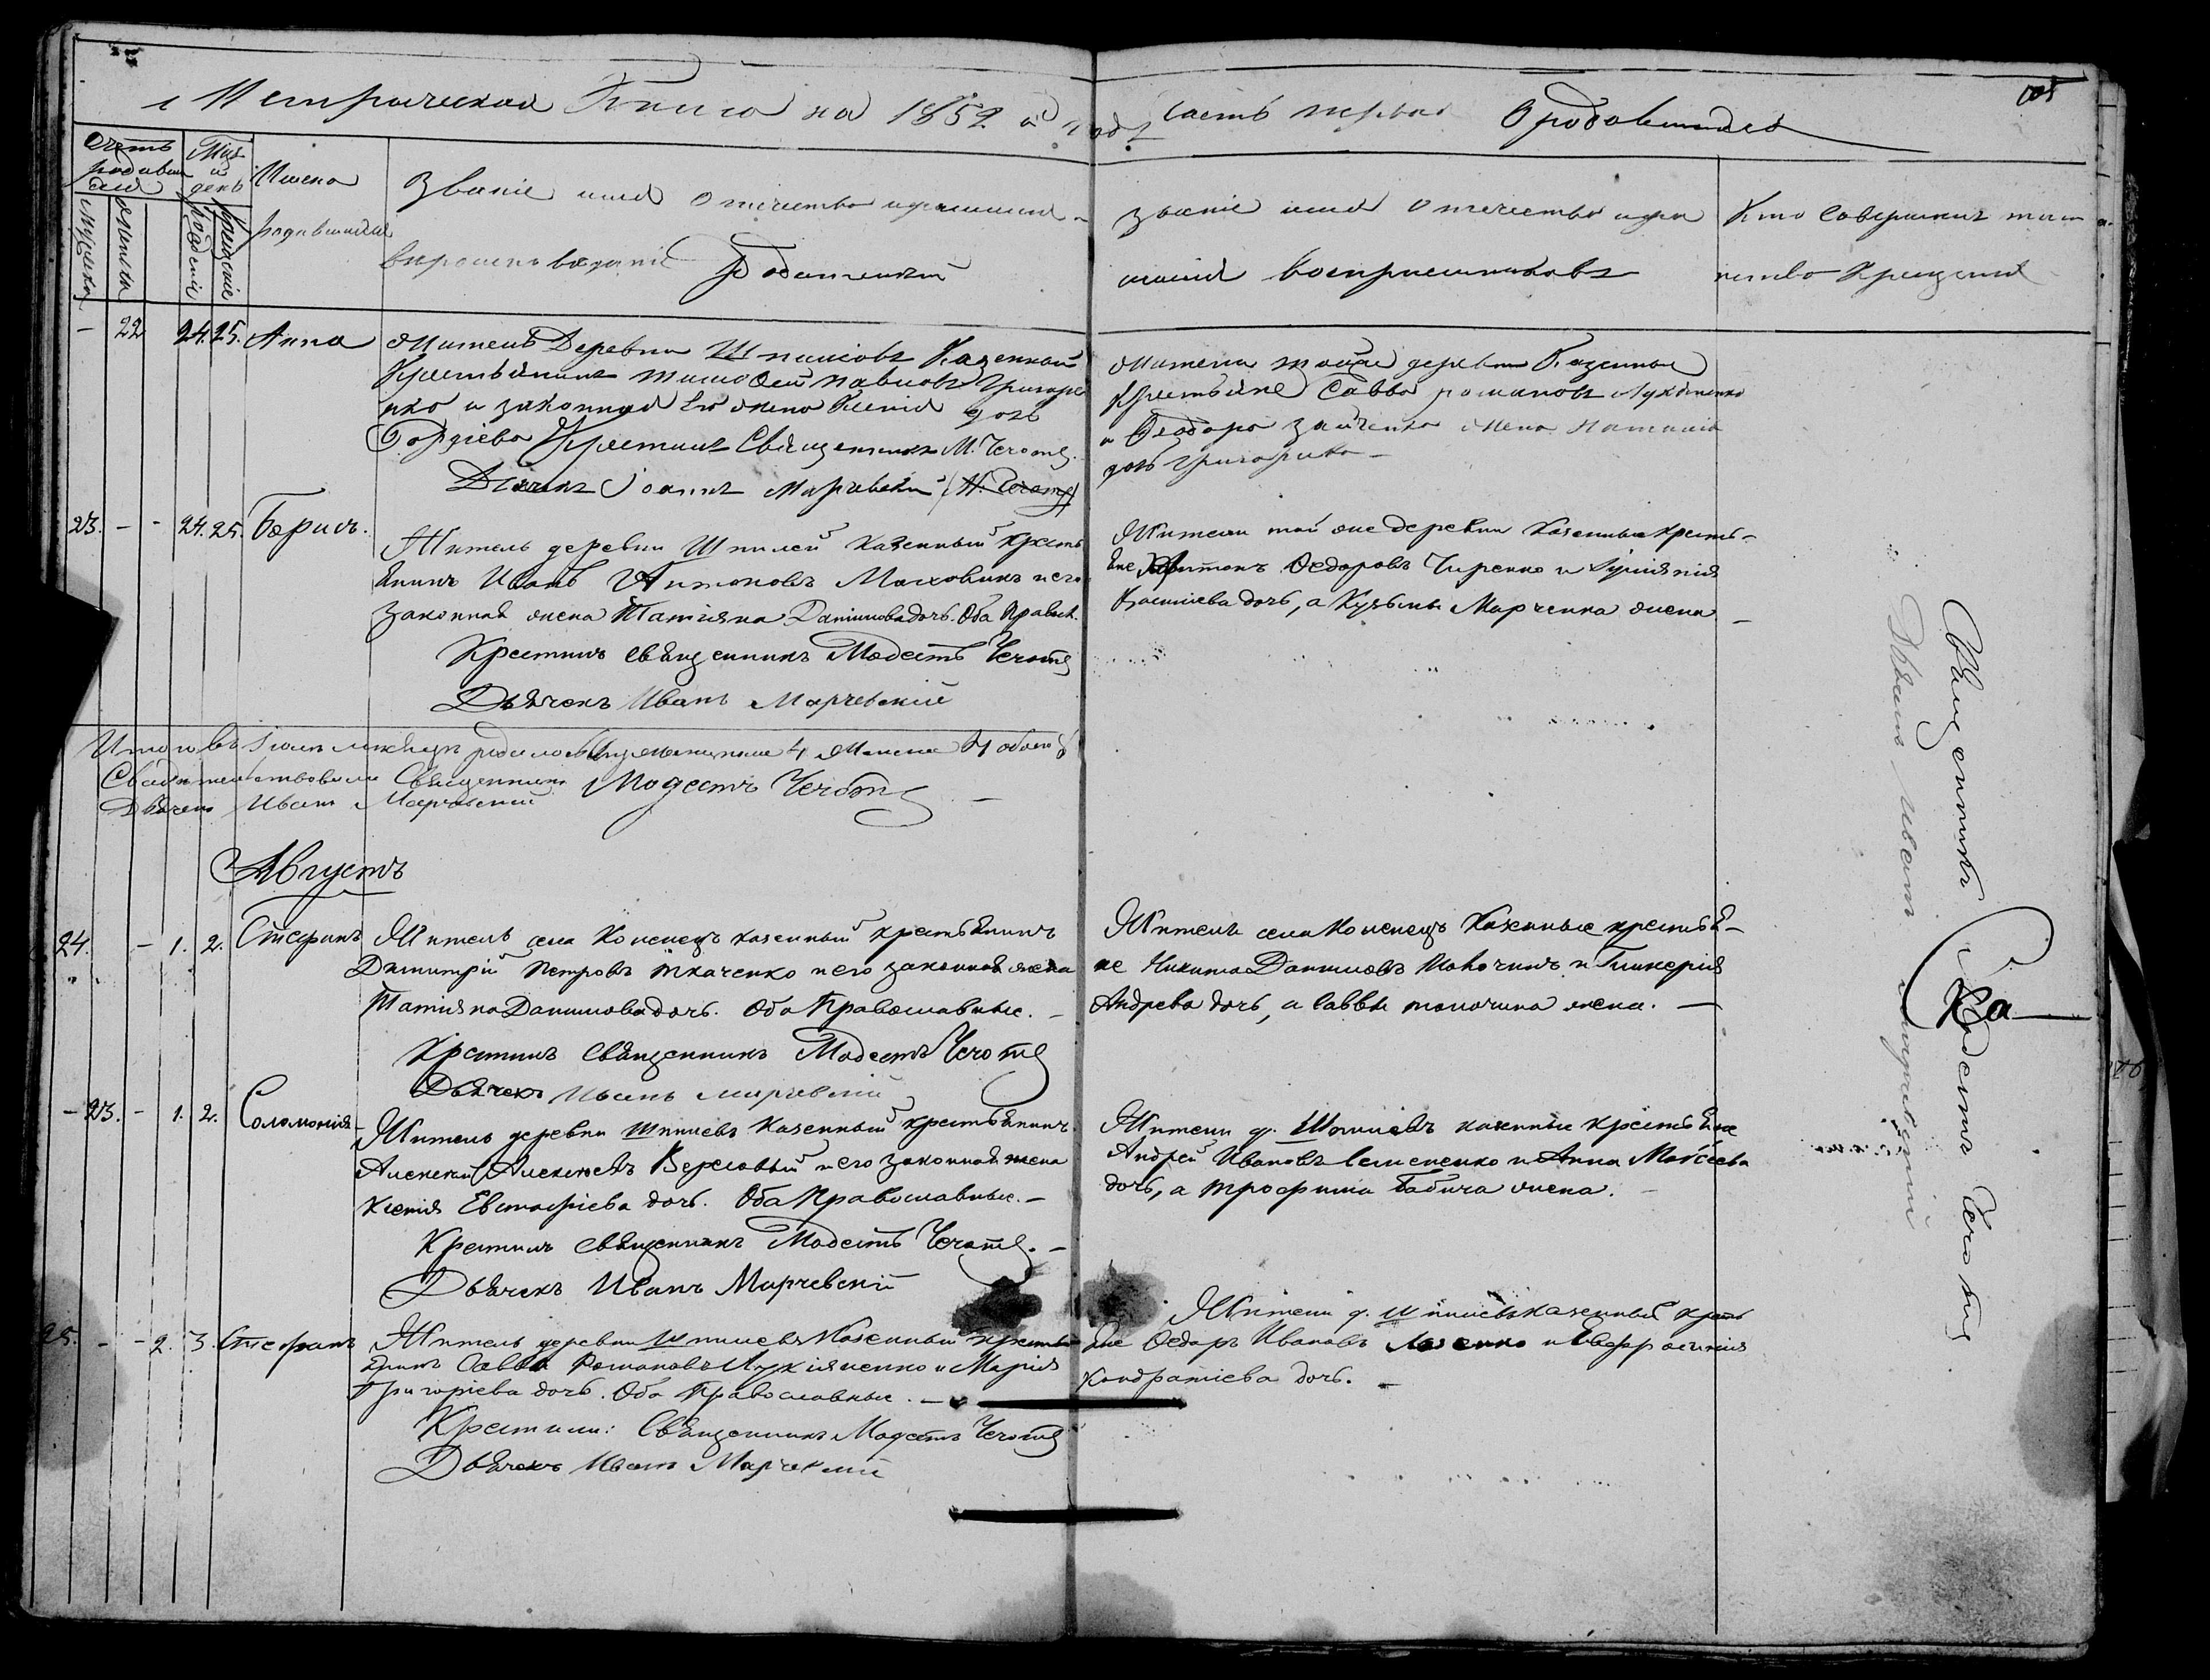 Метрическая Книга на 1852 й годъ часть первая О родовшихся
Счетъ родившихся
Мужеска
Женска
Мѣс. и день
рожденіе
крещеніе
Имена
родившихся
Званіе имя отчество и фамилія
вѣроисповѣданіе Родителей
званіе имя отчество и фа
милія воспріемниковъ
Кто совершилъ таи
нство Крещенія
- 22 24. 25. Анна
Житель Деревни Шпилювъ Казенный
Крестьянинъ Тимофей Павловъ Григоре
нко и законная его жена Ксенія дочь
Гордіева Крестилъ Священникъ М. Чеготъ.
Дьячекъ Іоаннъ Марчевскій
жители той же деревни Казенные
Крестьяне Савва романовъ Лукіяненко
и Феодора Зайченка жена Наталія
дочь Григорьева -
23. - - 24. 25. Борисъ.
Житель деревни Шпилей казенный кресть
янинъ Иванъ Антоновъ Маховикъ и его
законная жена Татіяна Даниилова дочь. Оба Правосл.
Крестилъ священникъ Модестъ Чеготъ
Дьячекъ Иванъ Марчевскій
Жители той же деревни Казенные кресть-
яне Харитонъ Федоровъ Чиренко и
дочь, а Кузьмы Марченка жена. -
Итого въ Іюлѣ мѣсяцѣ родилось Мужескихъ 4 Женска 4 обоего 8
Свидѣтельствовали Священникъ Модестъ Чеготъ
Дьячекъ Иванъ Марчевскій
Августъ
24. - 1. 2. Стефанъ
Житель села Копенецъ казенный крестьянинъ
Димитрій Петровъ Ткаченко и его законная жена
Татіяна Даниилова дочь. Оба Православные. -
Крестилъ священникъ Модестъ Чеготъ
Дьячекъ Иванъ Марчевскій
Жители села Копенецъ Казенные крестья-
не Никита Данииловъ и Гликерія
Андреева дочь, а Саввы жена. -
- 23. - 1. 2. Соломонія
Житель деревни Шпилевъ Казенный крестьянинъ
Алексѣй Алексѣевъ Вержовый и его законная жена
Ксенія Евстафіева дочь. Оба Православные. -
Крестилъ священникъ Модестъ Чеготъ. -
Дьячекъ Иванъ Марчевскій
Жители д. Шпилевъ казенные крестьяне
Андрей Ивановъ Семененко и Анна Моѵсеева
дочь, а Трофима Бабича жена. -
25. - - 2. 3. Стефанъ
Житель деревни Шпилевъ Казенный кресть
янинъ Савва Романовъ Лукіяненко и Марія
Григоріева дочь. Оба Православные. -
Крестили: Священникъ Модестъ Чеготъ
Дьячекъ Иванъ Марчевскій
Жители д. Шпилевъ казенный кресть
яне Федоръ Ивановъ и Евфросинія
Кондратіева дочь. -
Священникъ Модестъ Чеготъ
Дьячекъ Иванъ Марчевскій